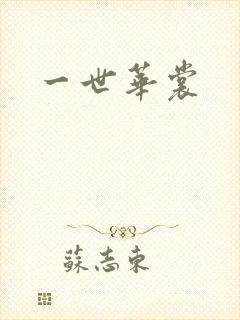 一世華裳
蘇志東